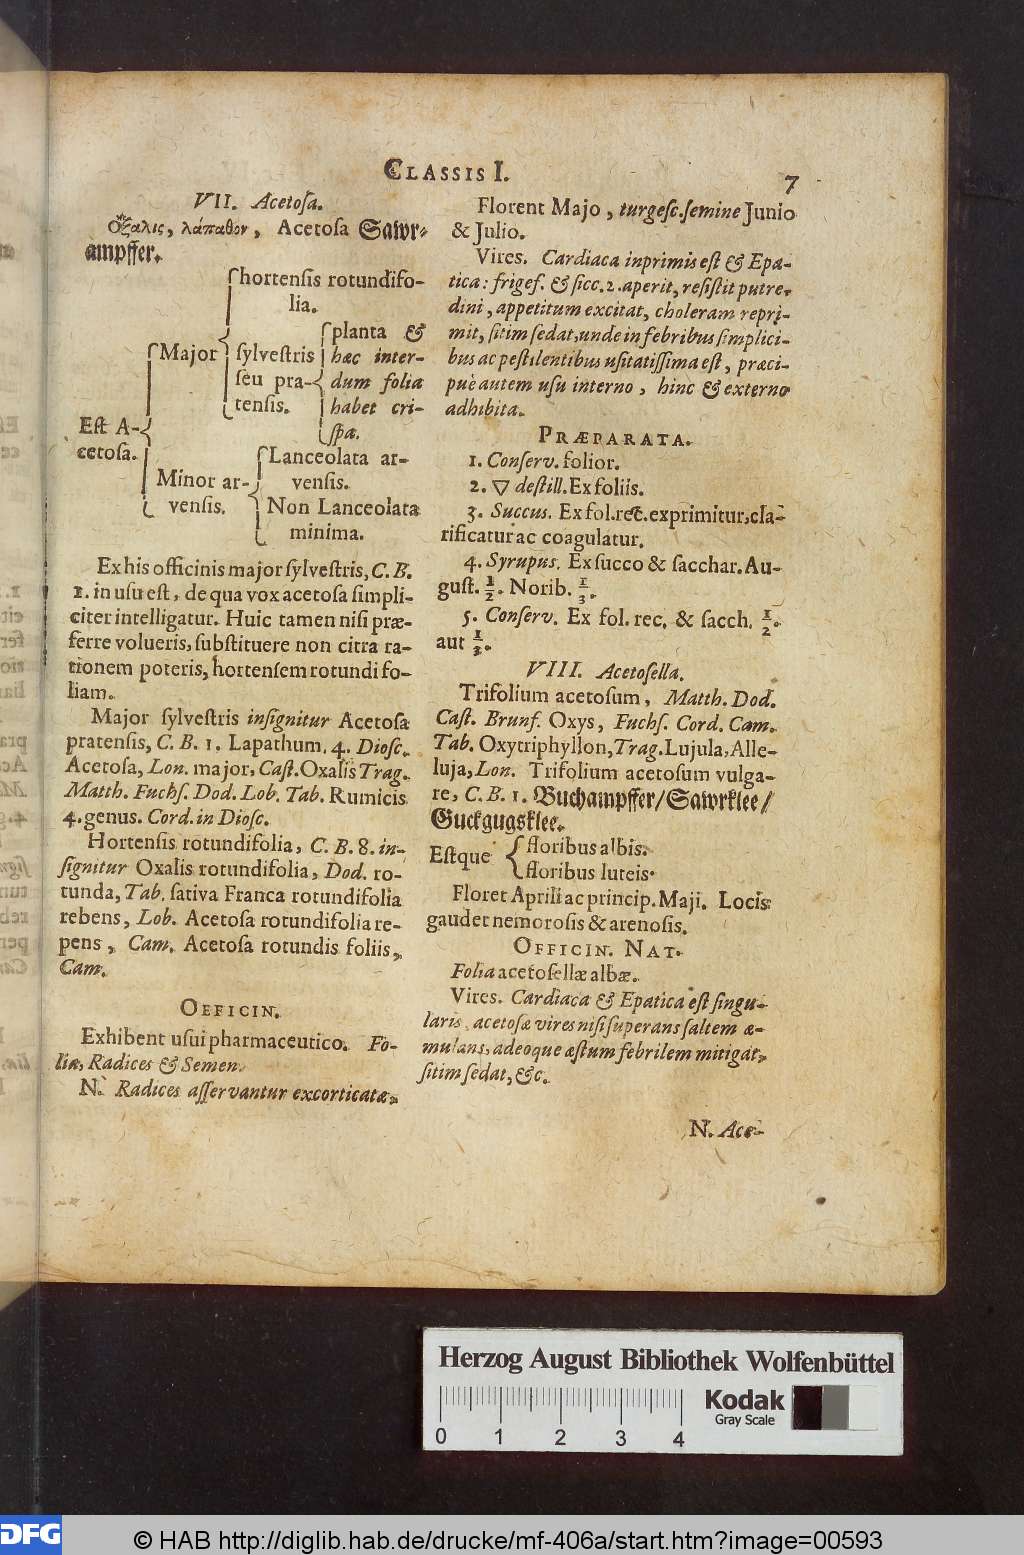 CLASSIS I.
7
VII. Acetoſa.
Ὀξαλις, λάπαθον, Acetoſa Sawr-
ampffer.
hortenſis rotundifo-
lia.
planta &
Major ſylveſtris hæc inter-
ſeu pra- dum folia
tenſis. habet cri-
Eſt A- ſpa.
cetoſa. Lanceolata ar-
Minor ar- venſis.
venſis. Non Lanceolata
minima.
Ex his officinis major ſylveſtris, C. B.
1. in uſu eſt, de qua vox acetoſa ſimpli-
citer intelligatur. Huic tamen niſi præ-
ferre volueris, ſubſtituere non citra ra-
tionem poteris, hortenſem rotundifo-
liam.
Major ſylveſtris inſignitur Acetoſa
pratenſis, C. B. 1. Lapathum. 4. Dioſc.
Acetoſa, Lon. major, Caſt. Oxalis Trag.
Matth. Fuchſ. Dod. Lob. Tab. Rumicis
4. genus. Cord. in Dioſc.
Hortenſis rotundifolia, C. B. 8. in-
ſignitur Oxalis rotundifolia, Dod. ro-
tunda, Tab. ſativa Franca rotundifolia
rebens, Lob. Acetoſa rotundifolia re-
pens, Cam. Acetoſa rotundis foliis,
Cam.
OFFICIN.
Exhibent uſui pharmaceutico. Fo-
lia, Radices & Semen.
N. Radices aſſervantur excorticatæ.
Florent Majo, turgeſc. ſemine Junio
& Julio.
Vires. Cardiaca inprimis eſt & Epa-
tica: frigeſ. & ſicc. 2. aperit, reſiſtit putre-
dini, appetitum excitat, choleram repri-
mit, ſitim ſedat, unde in febribus ſimplici-
bus ac peſtilentibus uſitatiſſima eſt, præci-
puè autem uſu interno, hinc & externo
adhibita.
PRÆPARATA.
1. Conſerv. folior.
2. ▽ deſtill. Ex foliis.
3. Succus. Ex fol. rec. exprimitur, cla-
rificatur ac coagulatur.
4. Syrupus. Ex ſucco & ſacchar. Au-
guſt. 1/2. Norib. 1/3.
5. Conſerv. Ex fol. rec. & ſacch. 1/2.
aut 1/3.
VIII. Acetoſella.
Trifolium acetoſum, Matth. Dod.
Caſt. Brunf. Oxys, Fuchſ. Cord. Cam.
Tab. Oxytriphyllon, Trag. Lujula, Alle-
luja, Lon. Trifolium acetoſum vulga-
re, C. B. 1. Buchampffer/Sawrklee/
Guckgugsklee.
Eſtque floribus albis.
floribus luteis.
Floret Aprili ac princip. Maji. Locis
gaudet nemoroſis & arenoſis.
OFFICIN. NAT.
Folia acetoſellæ albæ.
Vires. Cardiaca & Epatica eſt ſingu-
laris, acetoſæ vires niſi ſuperans ſaltem æ-
mulans, adeoque æſtum febrilem mitigat,
ſitim ſedat, &c.
N. Ace-
Herzog August Bibliothek Wolfenbüttel
Kodak
Gray Scale
0 1 2 3 4
DFG
© HAB http://diglib.hab.de/drucke/mf-406a/start.htm?image=00593